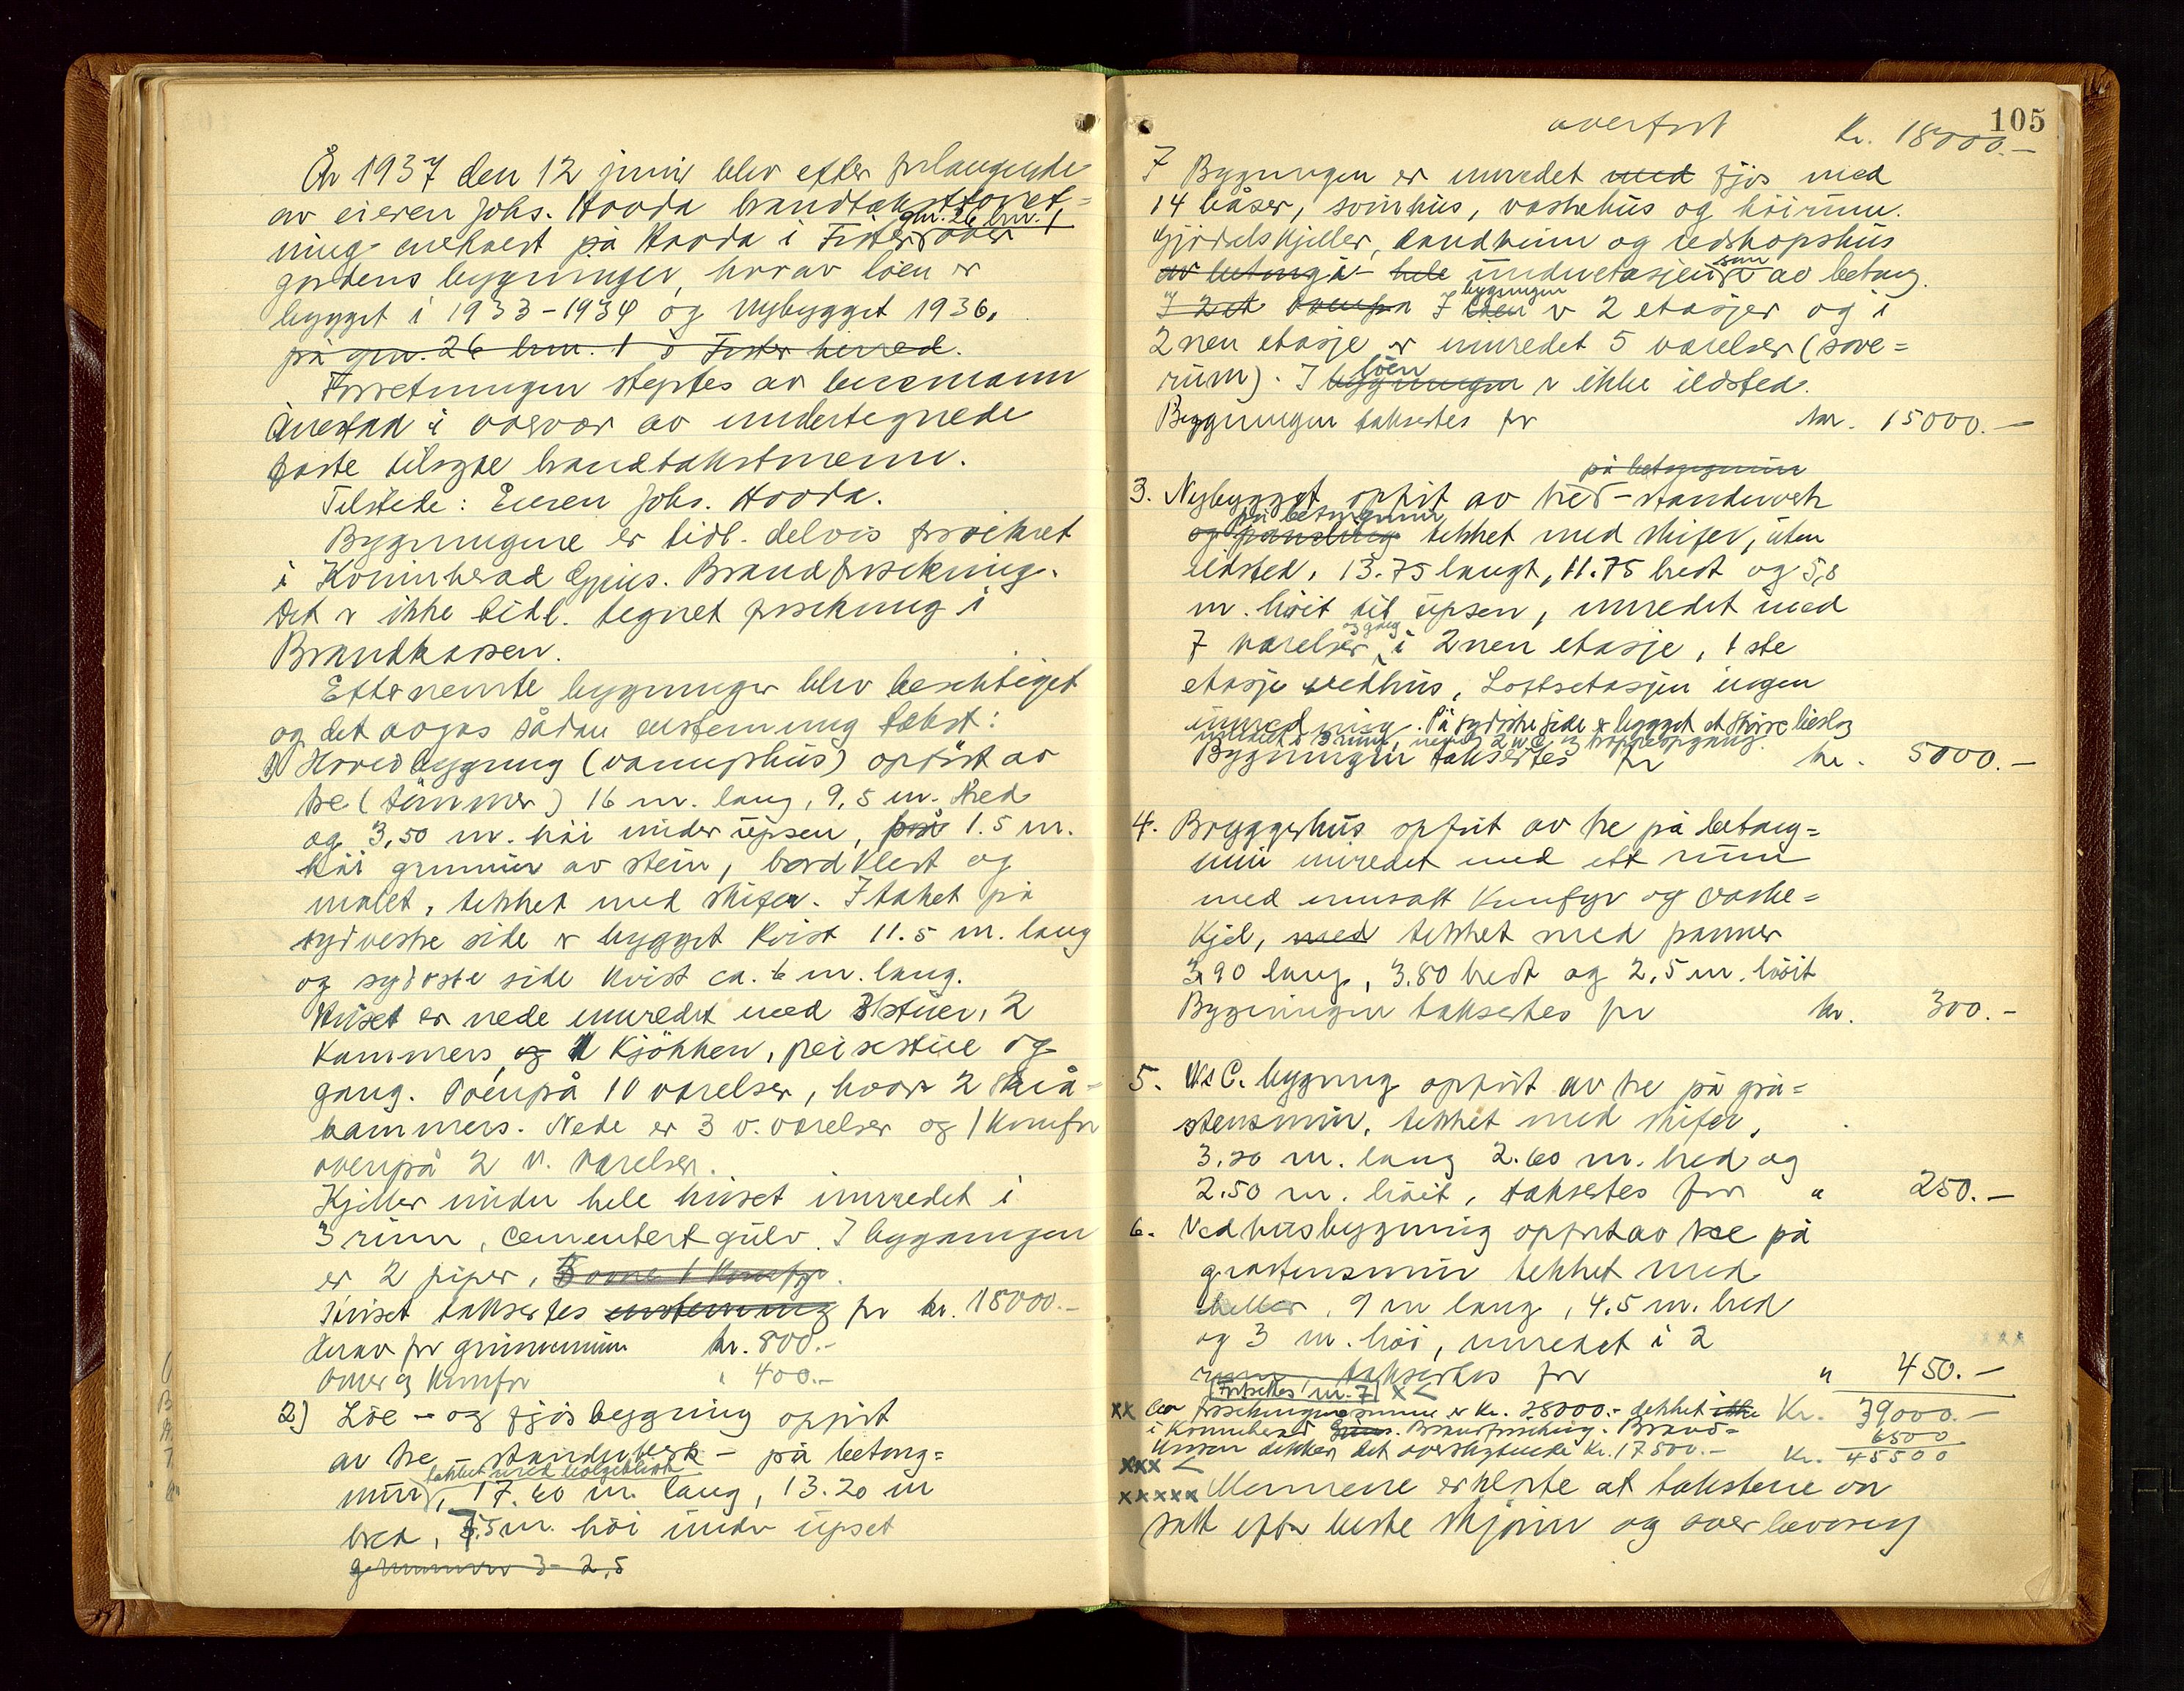 År 1937 den 12 juni blev efter forlangende
av eieren Johs. Hovda brandtakstforret=
gnr. 26 bnr. 1
ning avholdt på Hovda i Fister over
gardens bygninger, hvorav löen er
bygget i 1933-1934 og Nybygget 1936.
på gnr. 26 bnr. 1 i Fister herred.
Forretningen styrtes av lensmann
i nærvær av undertegnede
faste tilsynte brandtakstmenn.
Tilstede: Eieren Johs. Hovda.
Bygningene er tidl. delvis forsikret
i Kominherad Gjens. Brandforsikring.
Det er ikke tidl. tegnet forsikring i
Brandkassen.
Efternevnte bygninger blev besiktiget
og det avgas sådan enstemmig takst:
1) Hovedbygning (vaaningshus) opført av
tre (tömmer) 16 m. lang, 9,5 m. bred
og 3,50 m. höi under upsen, på 1.5 m.
höi grunnmur av stein, bordkledt og
malet, tekket med skifer. I taket på
sydvestre side er bygget kvist 11.5 m. lang
og sydöstre side kvist ca. 6 m. lang.
Huset er nede innredet med 3 stuer, 2
kammers, og 1 kjökken, peisestue og
gang. Ovenpå 10 værelser, hvorav 2 skrå=
kammers. Nede er 3 v. værelser og 1 komfyr
ovenpå 2 v. værelser.
Kjeller under hele huset innredet i
3 rum, cementert gulv. I bygningen
er 2 piper, 3 ovne 1 komfyr.
Huset taksertes enstemmig for kr. 18000.-
derav for grunnmuren kr. 800.-
Ovner og komfyr " 400.-
2) Löe - og fjösbygning opfört
av tre - stenderverk - på betong=
tekket med bölgeblikk
mur, 17.60 m. lang, 13.20 m
bred, 5.5 m. höi under upset
grunnmur 3 - 2,5
105
overfört Kr. 18000.-
Bygningen er innredet med fjös med
14 båser, svinhus, vaskehus og höirum.
Gjödselskjeller, landkum og redskapshus
som
av betong i hele underetasjen er av betong.
bygningen
I 2 et ovenpå I löen er 2 etasjer og i
2nen etasje er innredet 5 værelser (sove=
löen
rum). I bygningen er ikke ildsted.
Bygningen taksertes for kr. 15000.-
på betongmur
3. Nybygget opfört av tre - stenderverk
på betongmur
og tekket med skifer, uten
ildsted, 13.75 langt, 11.75 bredt og 5,8
m. höit til upsen, innredet med
og gang
7 værelser i 2nen etasje, 1ste
etasje vedhus, Loftsetasjen ingen
innredning. På nordöstre side er bygget et större bislag
innredet i 3 rum, nemlig 2 W.C. og trappeopgang.
Bygningen taksertes for kr. 5000.-
4. Bryggerhus opfört av tre på betong=
mur innredet med ett rum
med innsatt komfyr og vaske=
kjel, med tekket med panner
3.90 lang, 3.80 bredt og 2,5 m. höit
Bygningen taksertes for kr. 300.-
5. W.C. bygning opfört av tre på grå=
stensmur, tekket med skifer,
3.20 m. lang 2.60 m. bred og
2.50 m. höit, taksertes for " 250.-
6. Vedhusbygning opfört av tre på
gråstensmur tekket med
heller, 9 m lang, 4.5 m. bred
og 3 m. höi, innredet i 2 xxx
rum, taksertes for " 450.-
(Fortsettes nr. 7) x<
xx Av forsikringssummen er kr. 28000.- dekket ikke Kr. 39000.-
i Kominherad Gjens. Brandforsikring. Brand= 6500
kassen dekker det overskytende kr. 17500.- Kr. 45500
xxx <
xxxxx Mennene erklærte at takstene er
satt efter beste skjönn og overbevisning